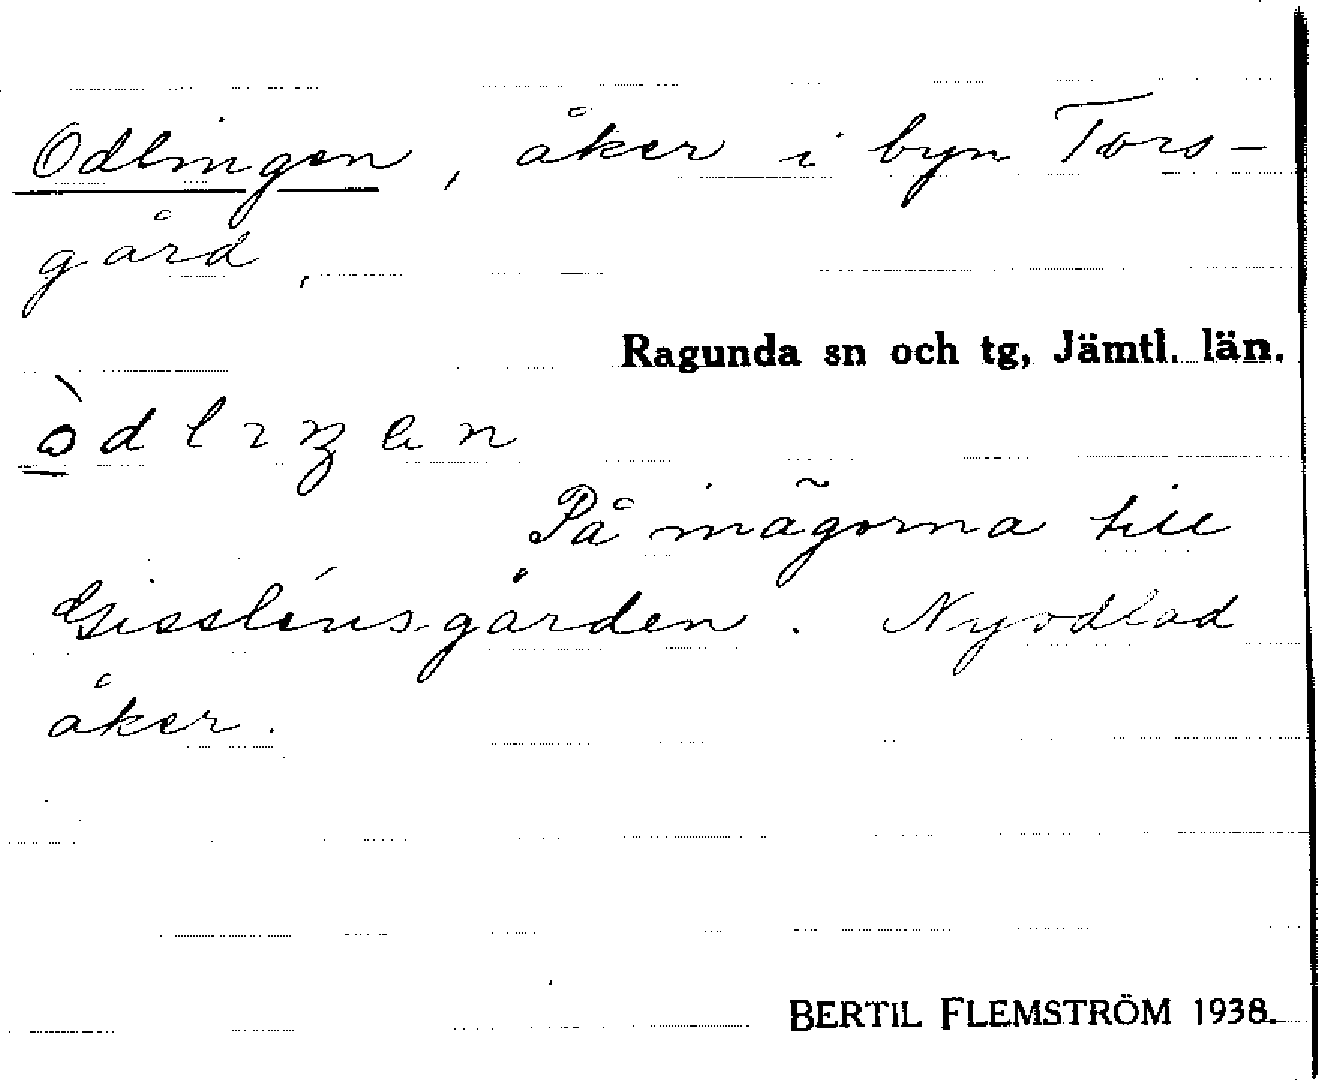 Odlingen, åker i byn Tors-
gård,
Ragunda sn och tg, Jämtl. län.
På inägorna till
Gissléns-gården. Nyodlad
åker.
BERTIL FLEMSTRÖM 1938.